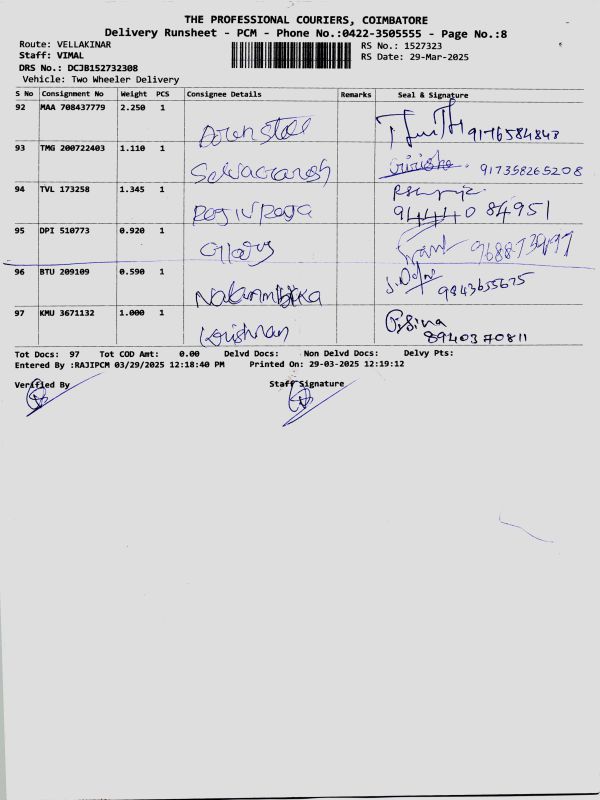 THE PROFESSIONAL COURIERS, COIMBATORE
Delivery Runsheet - PCM - Phone No.:0422-3505555 - Page No.:8
Route: VELLAKINAR RS No.: 1527323
Staff: VIMAL RS Date: 29-Mar-2025
DRS No.: DCJB152732308
Vehicle: Two Wheeler Delivery
S No Consignment No Weight PCS Consignee Details Remarks Seal & Signature
92 MAA 708437779 2.250 1 9176584843
93 TMG 200722403 1.110 1 917358265208
94 TVL 173258 1.345 1 84951
95 DPI 510773 0.920 1
96 BTU 209109 0.590 1 9843655675
97 KMU 3671132 1.000 1 Krishnan 8940370811
Tot Docs: 97 Tot COD Amt: 0.00 Delvd Docs: Non Delvd Docs: Delvy Pts:
Entered By :RAJIPCM 03/29/2025 12:18:40 PM Printed On: 29-03-2025 12:19:12
Verified By Staff Signature